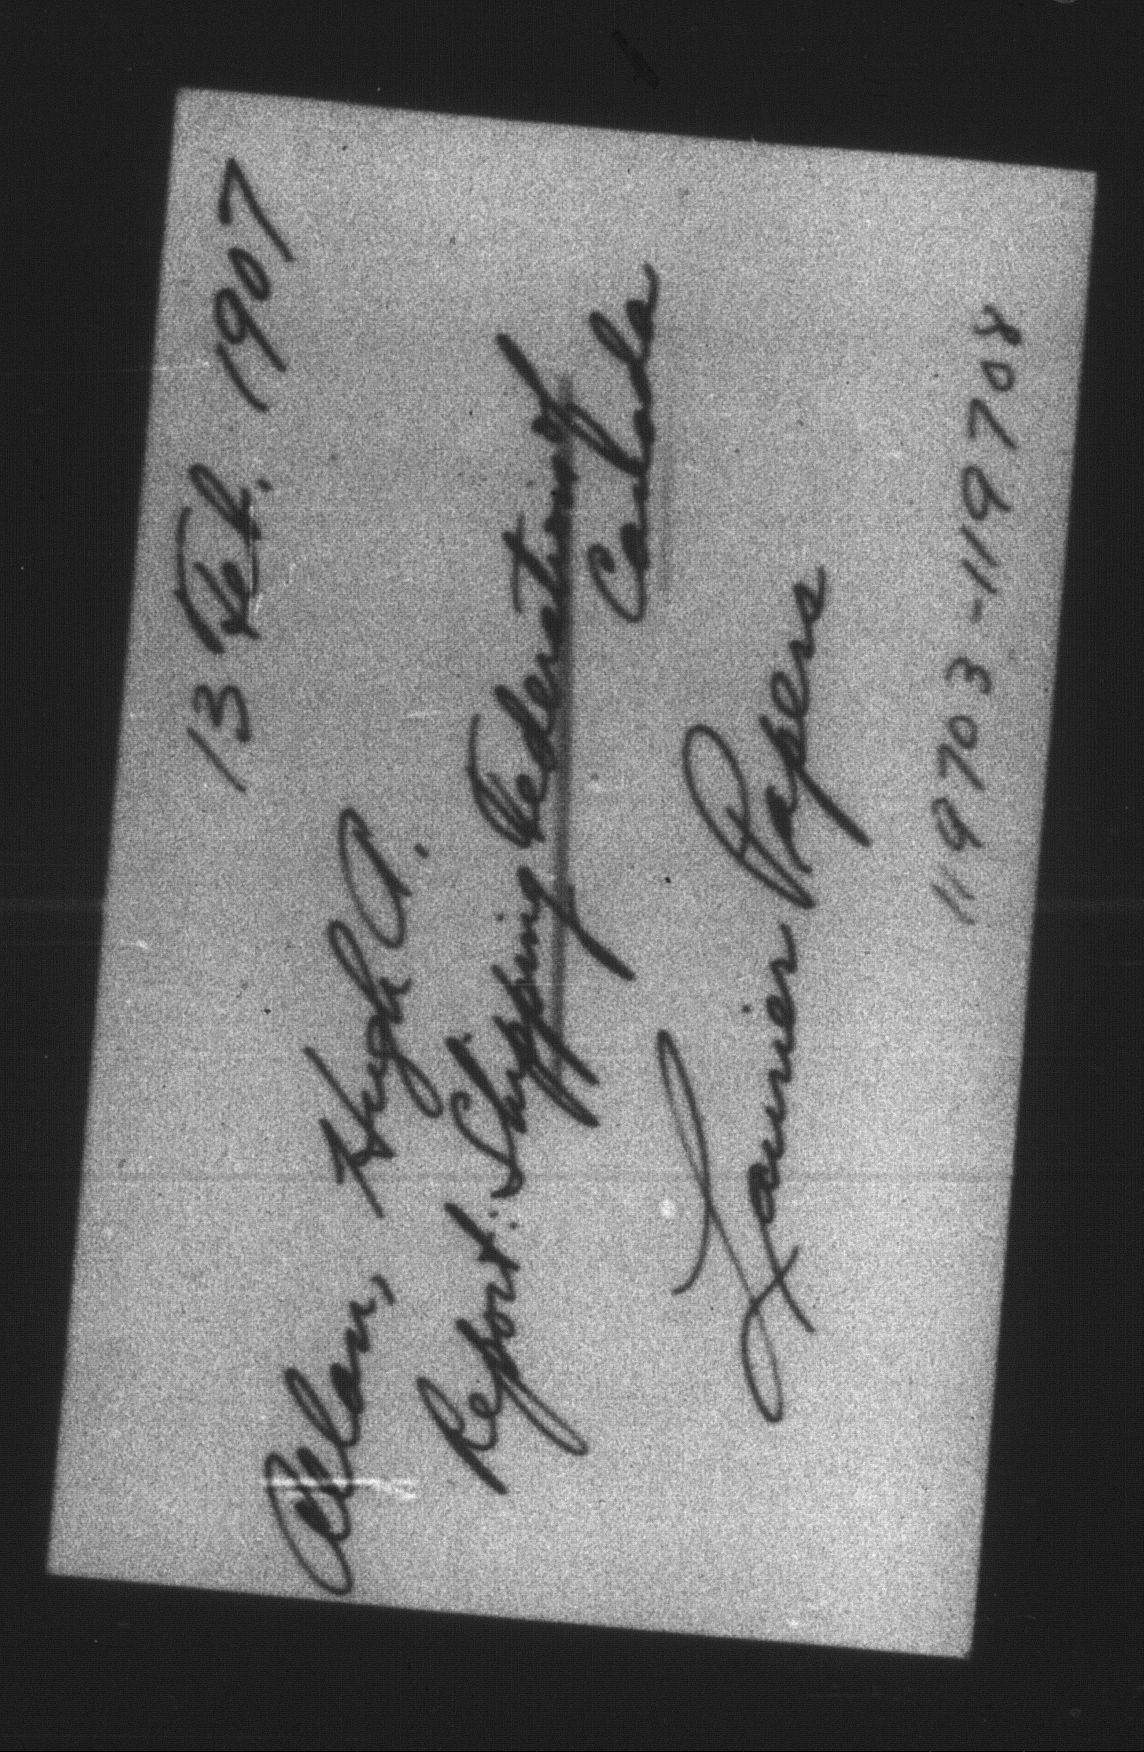 13 Feb. 1907
Allan, Hugh A.
Report: Shipping Federation of
Canada
Laurier Papers
119703-119708